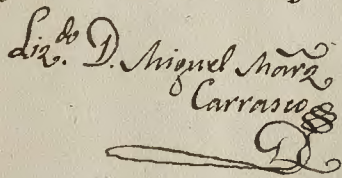 Liz.do D. Miguel Marz
Carrasco